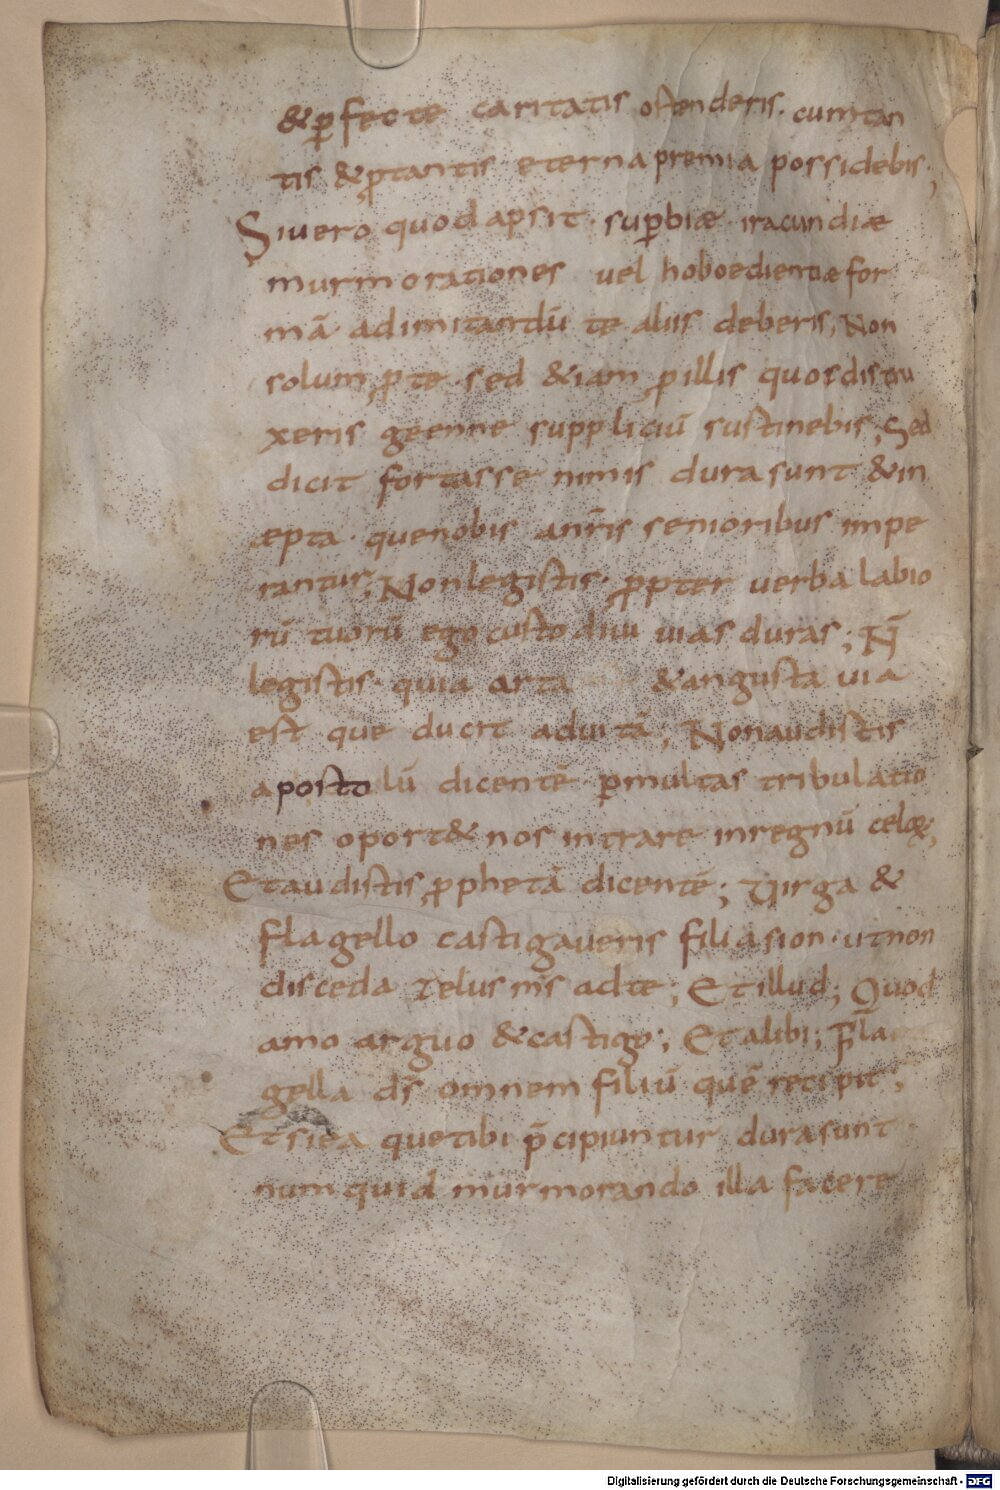 & ꝑfecte caritatis ostenderis · cum tan
tis & ꝓ tantis eterna premia possidebis ·,
Si vero quod apsit · suꝑbiæ · iracundiæ
murmorationes vel hoboedientiæ for
mā ad imitandū te aliis deberis; Non
solum ꝓ te · sed &iam ꝓ illis quos distru
xeris geenne suppliciū sustinebis; Sed
dicit fortasse nimis dura sunt & in
æpta · que nobis a nr̄is senioribus impe
rantur; Non legistis · ꝓpter verba labio
rū tuorū ego custodivi vias duras; N̄
legistis · quia arta & angusta via
est que ducit ad vitā; Non audistis
apostolū dicentē ꝑ multas tribulatio
nes oport& nos intrare in regnū celoꝝ;
Et audistis ꝓphetā dicentē; Virga &
flagello castigaveris filia sion · ut non
disceda zelus m̄s ad te; Et illud; Quod
amo arguo & castigo; Et alibi; Fla
gella d̄s omnem filiū quē recipit;
Et si ea que tibi p̄cipiuntur dura sunt
numquid murmorando illa facere
Digitalisierung gefördert durch die Deutsche Forschungsgemeinschaft - DFG